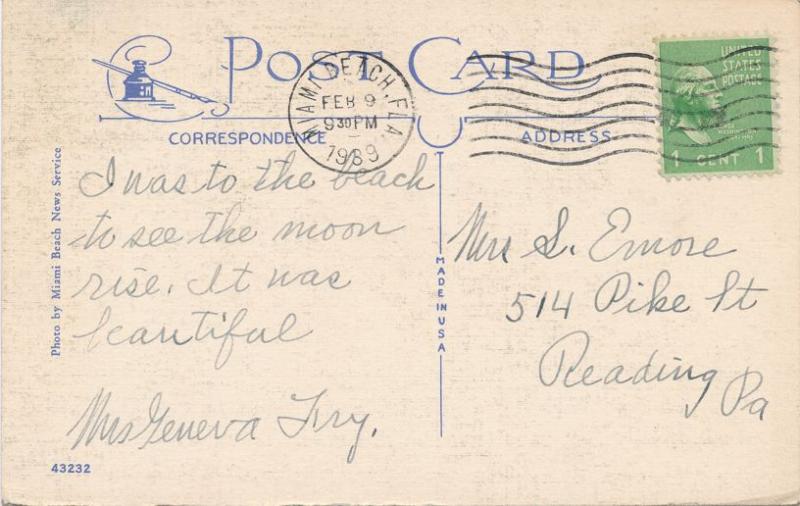 POST CARD
MIAMI BEACH, FLA.
FEB 9
930 PM
1939
UNITED
STATES
POSTAGE
WASHINGTON
1 CENT 1
CORRESPONDENCE
ADDRESS
Photo by Miami Beach News Service
I was to the beach
to see the moon
rise. It was
beautiful
Mrs Geneva Fry.
MADE IN USA
Mrs S. Emore
514 Pike St
Reading
Pa
43232